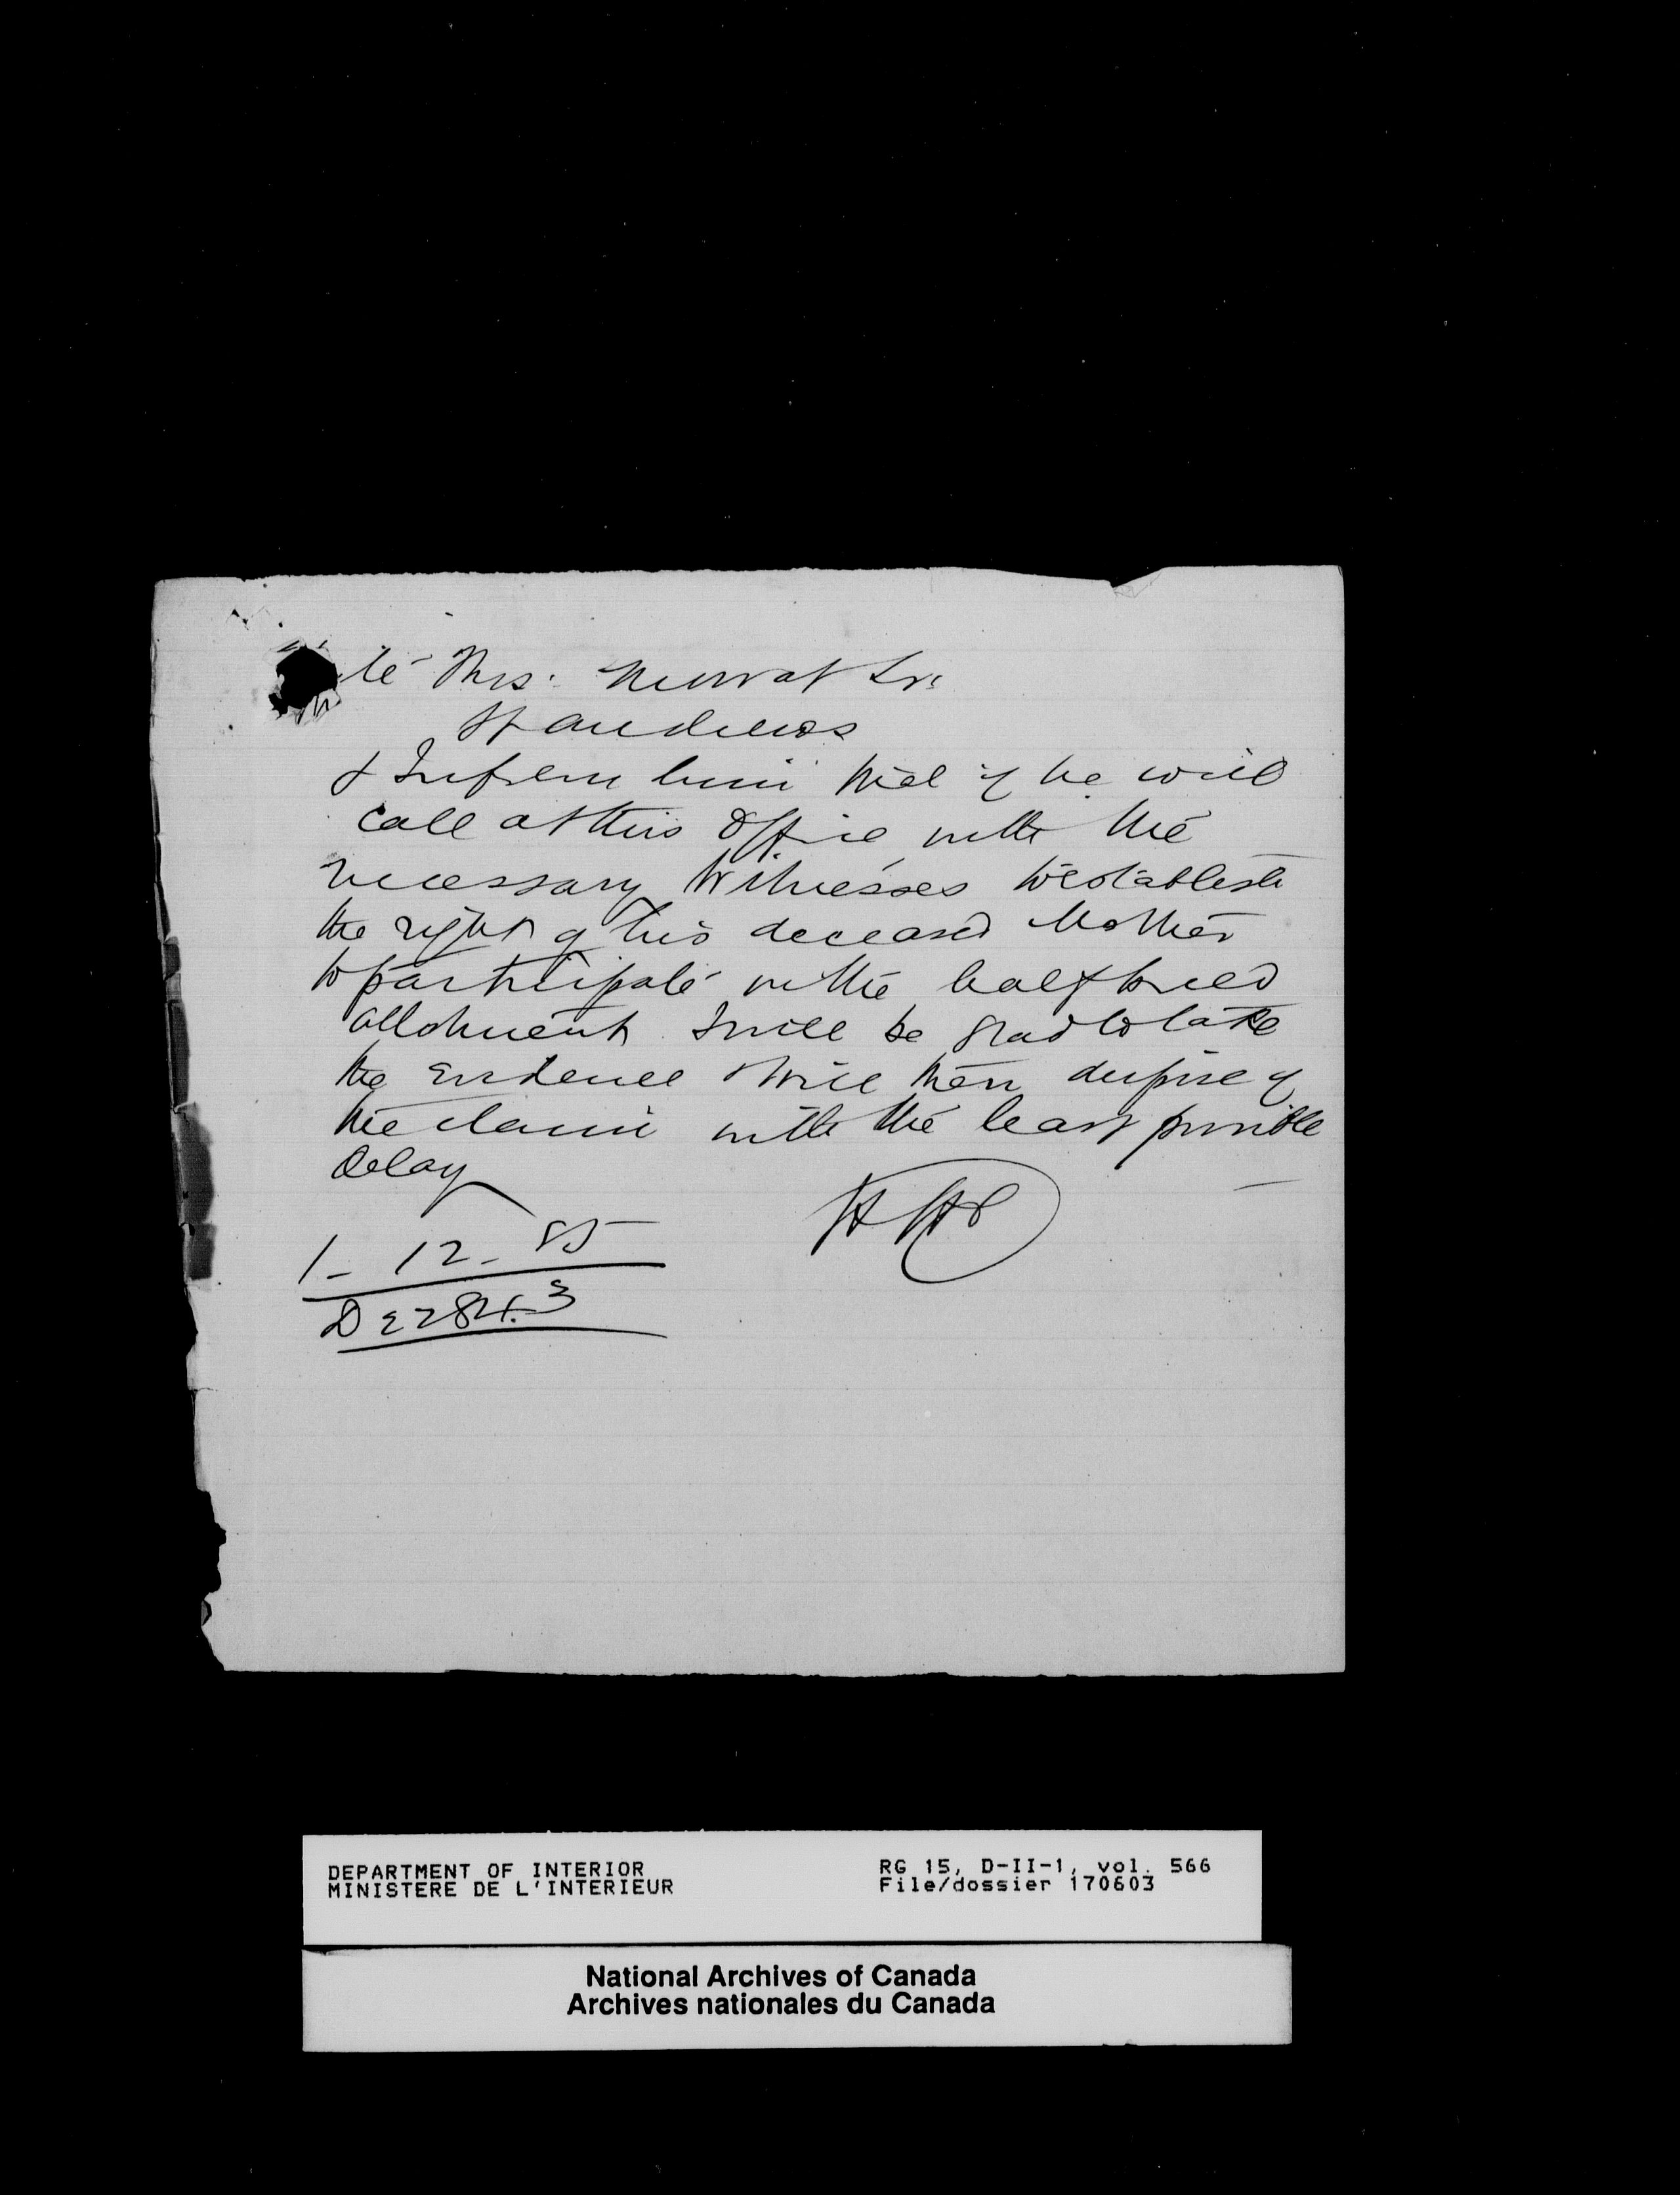 te Thos. Mowat Sr.
St Andrews
& Inform him that if he will
call at this Office with the
necessary Witnesses to establish
the right of his deceased Mother
to participate in the half breed
allotment I will be glad to take
the Evidence & will then dispose of
the claim with the least possible
delay
1 - 12 - 85
D 22843
DEPARTMENT OF INTERIOR
MINISTERE DE L'INTERIEUR
RG 15, D-II-1, vol. 566
File/dossier 170603
National Archives of Canada
Archives nationales du Canada